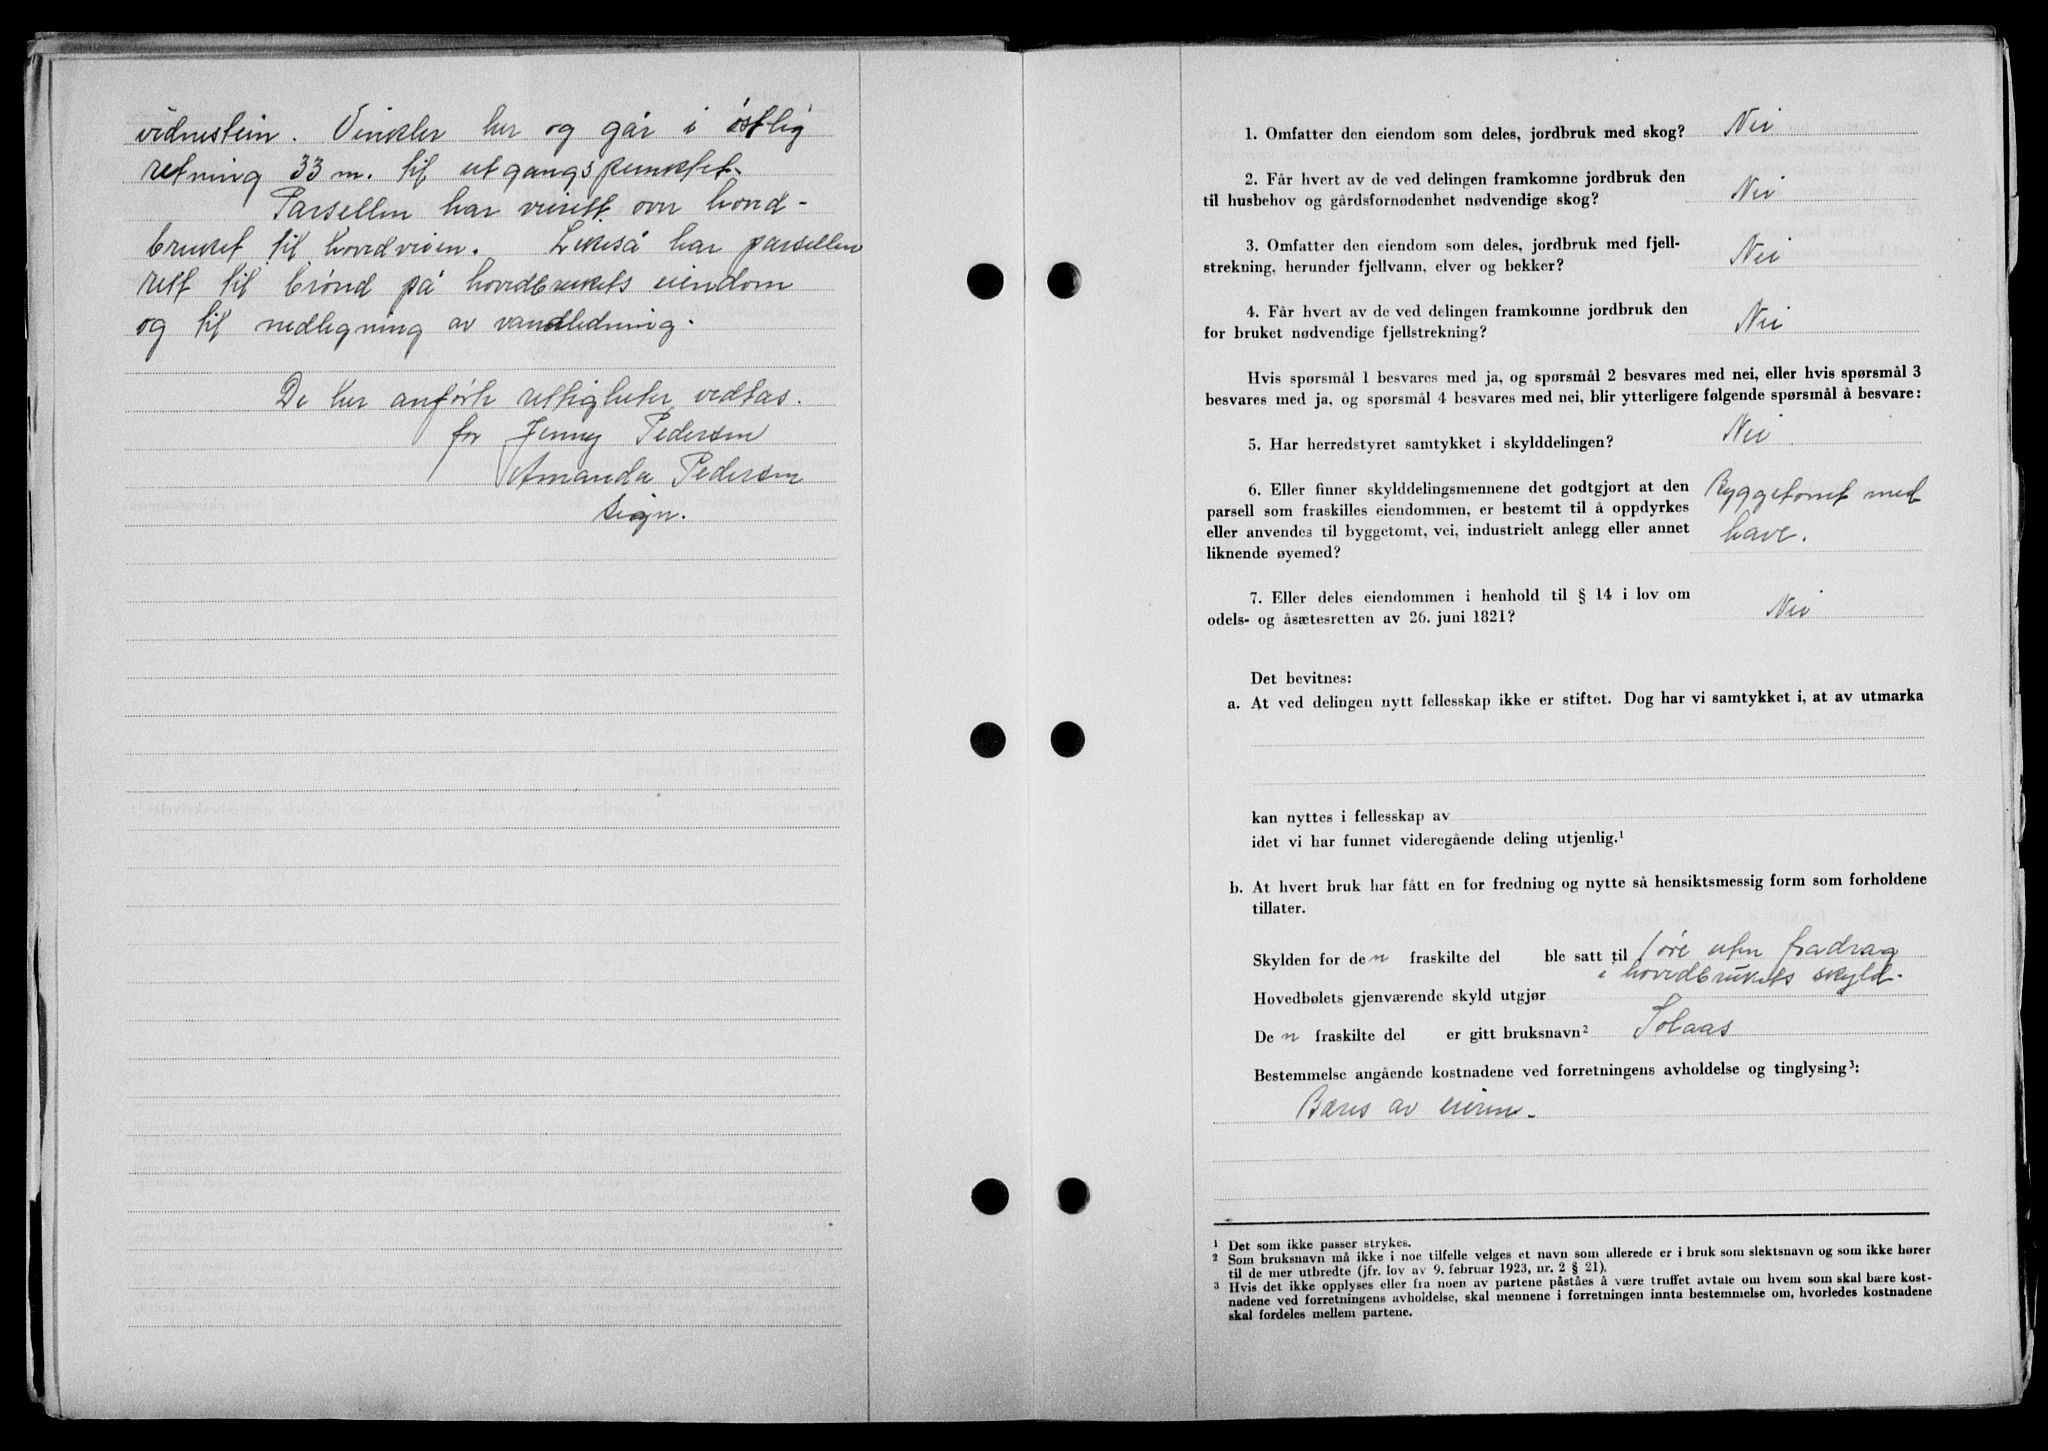 vidnestein. Vinkler her og går i østlig
retning 33 m. til utgangspunktet.
Parsellen har veirett over hoved-
bruket til hovedveien. Likeså har parsellen
rett til brønd på hovedbrukets eiendom
og til nedlegning av vandledning.
De her anførte rettigheter vedtas.
for Jenny Pedersen
Amanda Pedersen
sign.
1. Omfatter den eiendom som deles, jordbruk med skog? Nei
2. Får hvert av de ved delingen framkomne jordbruk den
til husbehov og gårdsfornødenhet nødvendige skog? Nei
3. Omfatter den eiendom som deles, jordbruk med fjell-
strekning, herunder fjellvann, elver og bekker? Nei
4. Får hvert av de ved delingen framkomne jordbruk den
for bruket nødvendige fjellstrekning? Nei
Hvis spørsmål 1 besvares med ja, og spørsmål 2 besvares med nei, eller hvis spørsmål 3
besvares med ja, og spørsmål 4 besvares med nei, blir ytterligere følgende spørsmål å besvare:
5. Har herredstyret samtykket i skylddelingen? Nei
6. Eller finner skylddelingsmennene det godtgjort at den
parsell som fraskilles eiendommen, er bestemt til å oppdyrkes
eller anvendes til byggetomt, vei, industrielt anlegg eller annet
liknende øyemed? Byggetomt med
have.
7. Eller deles eiendommen i henhold til § 14 i lov om
odels- og åsætesretten av 26. juni 1821? Nei
Det bevitnes:
a. At ved delingen nytt fellesskap ikke er stiftet. Dog har vi samtykket i, at av utmarka
kan nyttes i fellesskap av
idet vi har funnet videregående deling utjenlig.¹
b. At hvert bruk har fått en for fredning og nytte så hensiktsmessig form som forholdene
tillater.
Skylden for den fraskilte del ble satt til 1 øre uten fradrag
i hovedbrukets skyld.
Hovedbølets gjenværende skyld utgjør
Den fraskilte del er gitt bruksnavn² Solaas
Bestemmelse angående kostnadene ved forretningens avholdelse og tinglysing³:
Bæres av eieren.
¹ Det som ikke passer strykes.
² Som bruksnavn må ikke i noe tilfelle velges et navn som allerede er i bruk som slektsnavn og som ikke hører
til de mer utbredte (jfr. lov av 9. februar 1923, nr. 2 § 21).
³ Hvis det ikke opplyses eller fra noen av partene påståes å være truffet avtale om hvem som skal bære kost-
nadene ved forretningens avholdelse, skal mennene i forretningen innta bestemmelse om, hvorledes kostnadene
skal fordeles mellem partene.